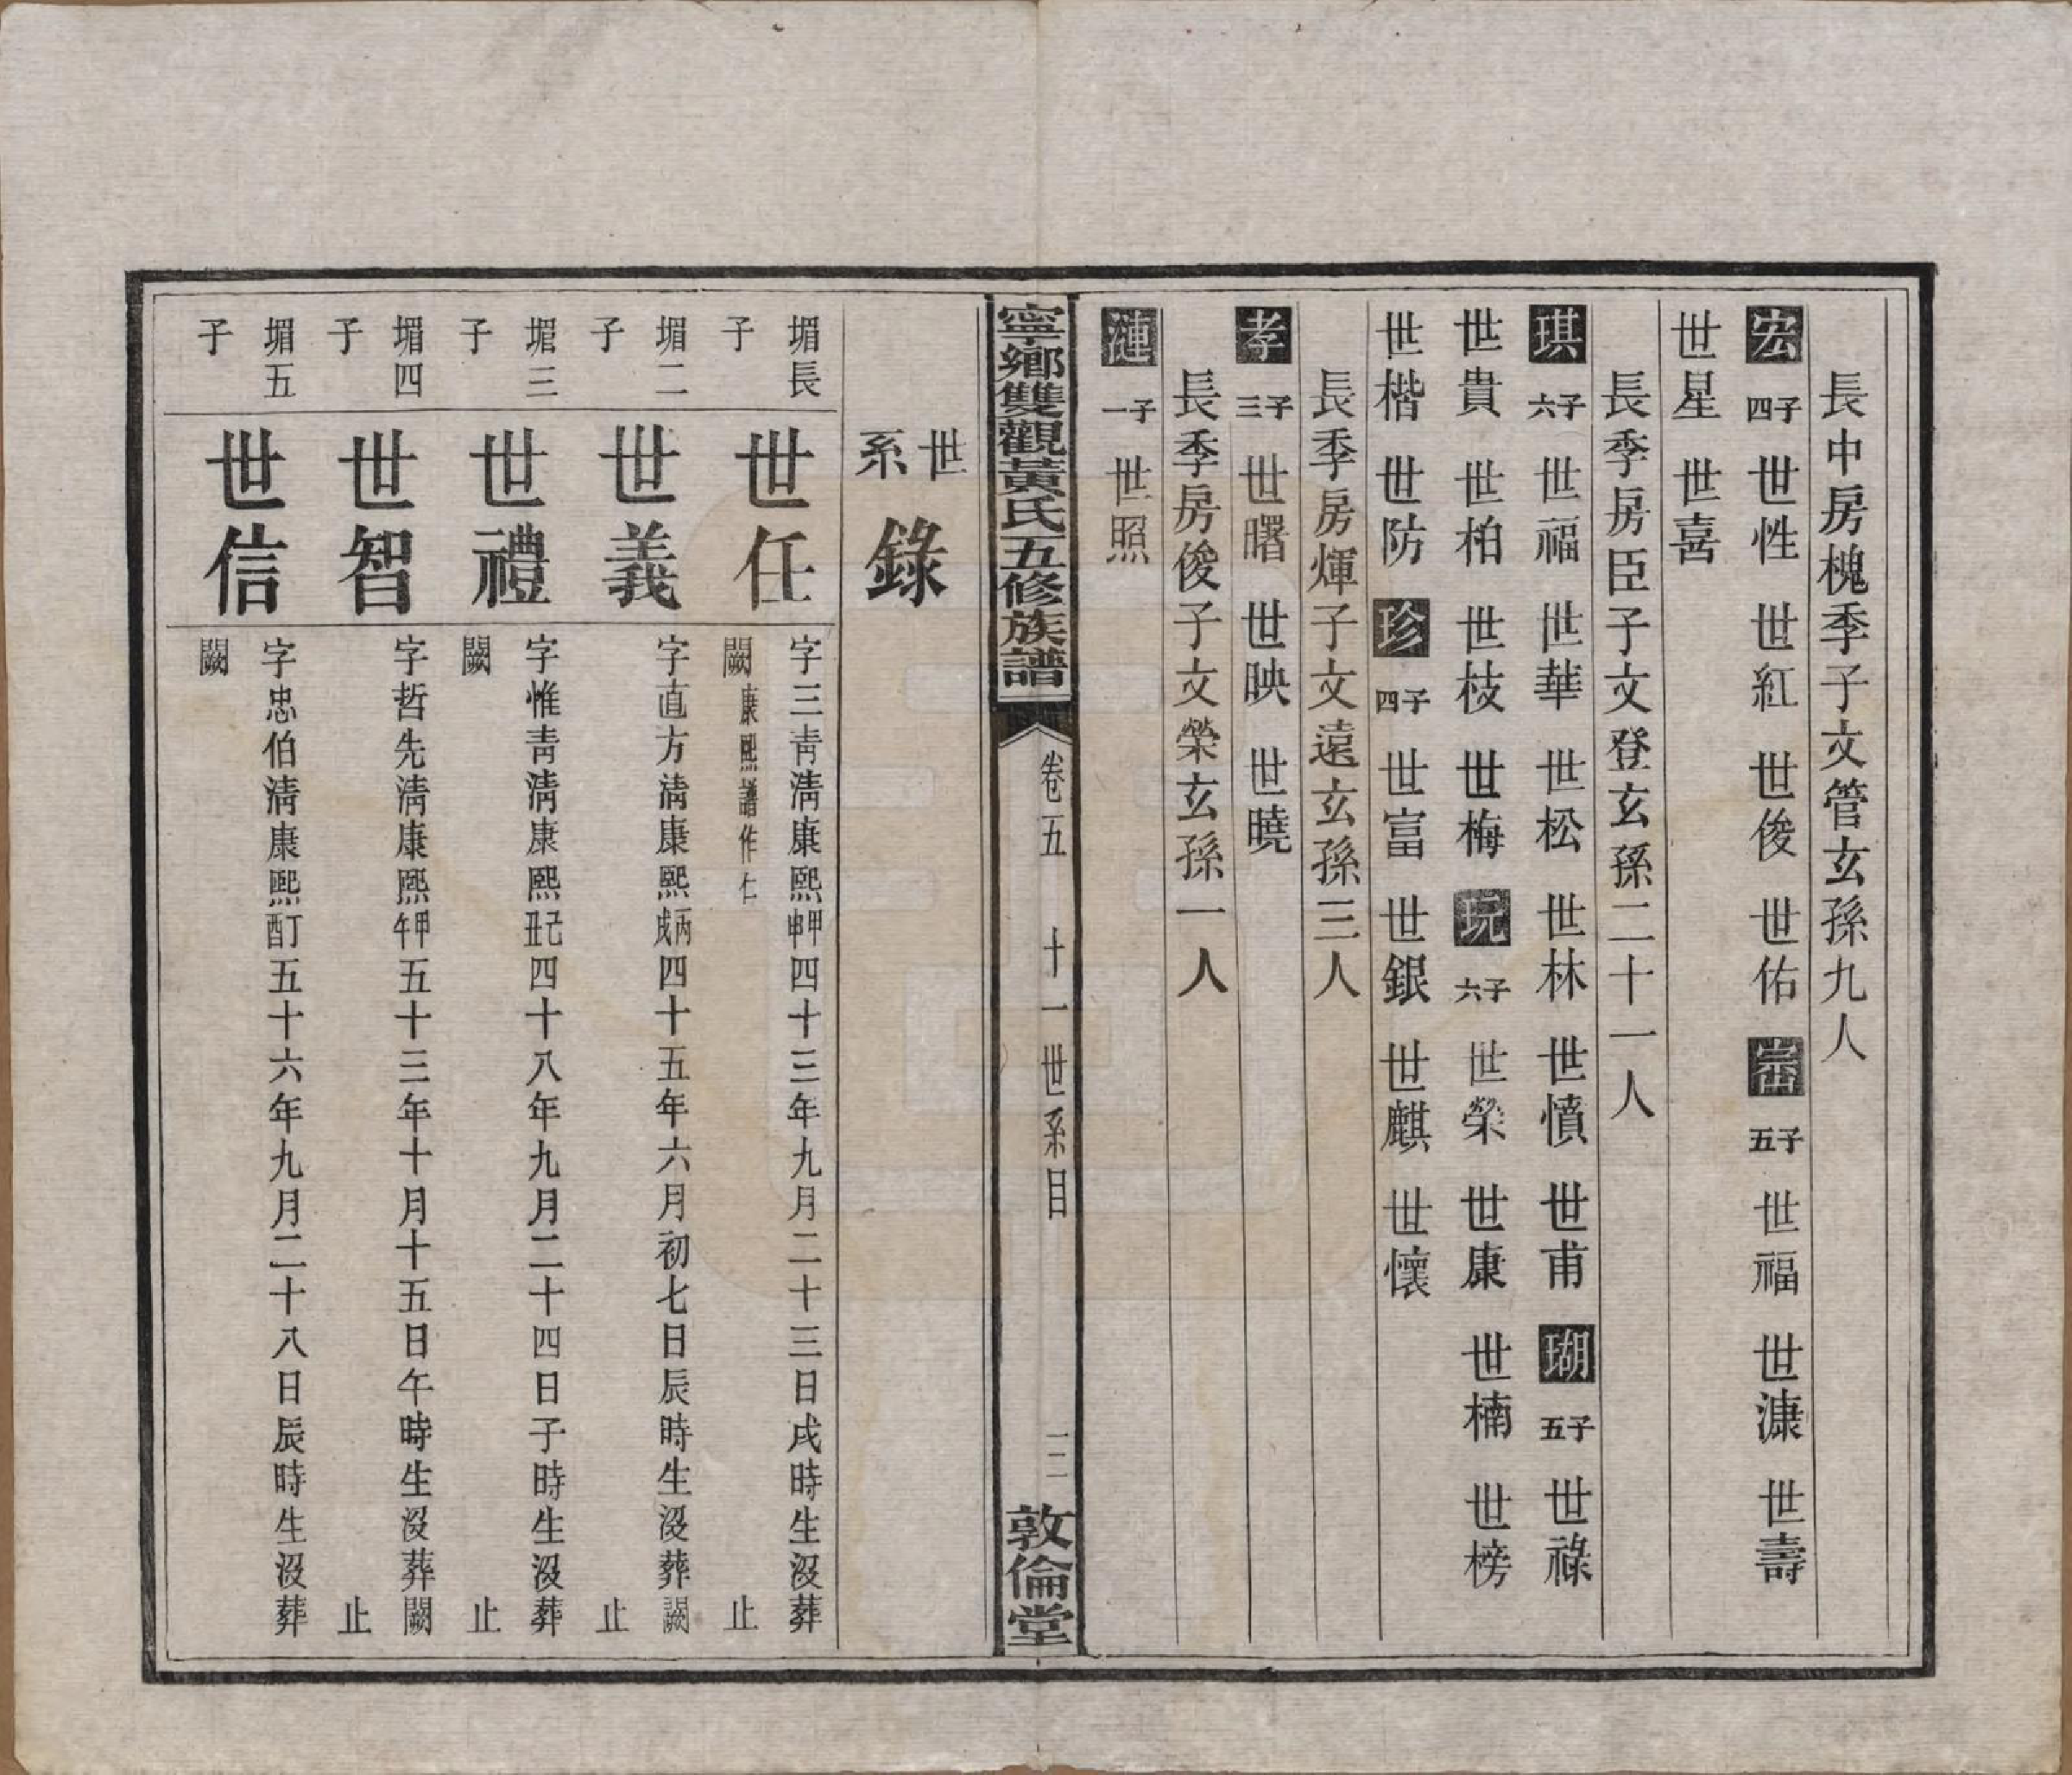 長中房槐季子文管玄孫九人
宏 四子 世性 世紅 世俊 世佑 崙 五子 世福 世漮 世壽
世星 世喜
長季房臣子文登玄孫二十一人
琪 六子 世福 世華 世松 世林 世憤 世甫 瑚 五子 世祿
世貴 世柏 世枝 世梅 玩 六子 世榮 世康 世楠 世榜
世楷 世防 珍 四子 世富 世銀 世麒 世懷
長季房煇子文遠玄孫三人
孝 三子 世曙 世映 世曉
長季房俊子文榮玄孫一人
漣 一子 世照
寧鄉雙觀黃氏五修族譜 卷五 十一世系目 二 敦倫堂
世系錄
堳長子 世任 字三靑淸康熙甲申四十三年九月二十三日戌時生沒葬闕 康熙譜作仁 止
堳二子 世義 字直方淸康熙丙戌四十五年六月初七日辰時生沒葬闕 止
堳三子 世禮 字惟靑淸康熙己丑四十八年九月二十四日子時生沒葬闕 止
堳四子 世智 字哲先淸康熙甲午五十三年十月十五日午時生沒葬闕 止
堳五子 世信 字忠伯淸康熙丁酉五十六年九月二十八日辰時生沒葬闕